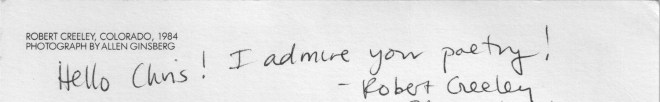 ROBERT CREELEY, COLORADO, 1984
PHOTOGRAPH BY ALLEN GINSBERG
Hello Chris! I admire your poetry!
- Robert Creeley